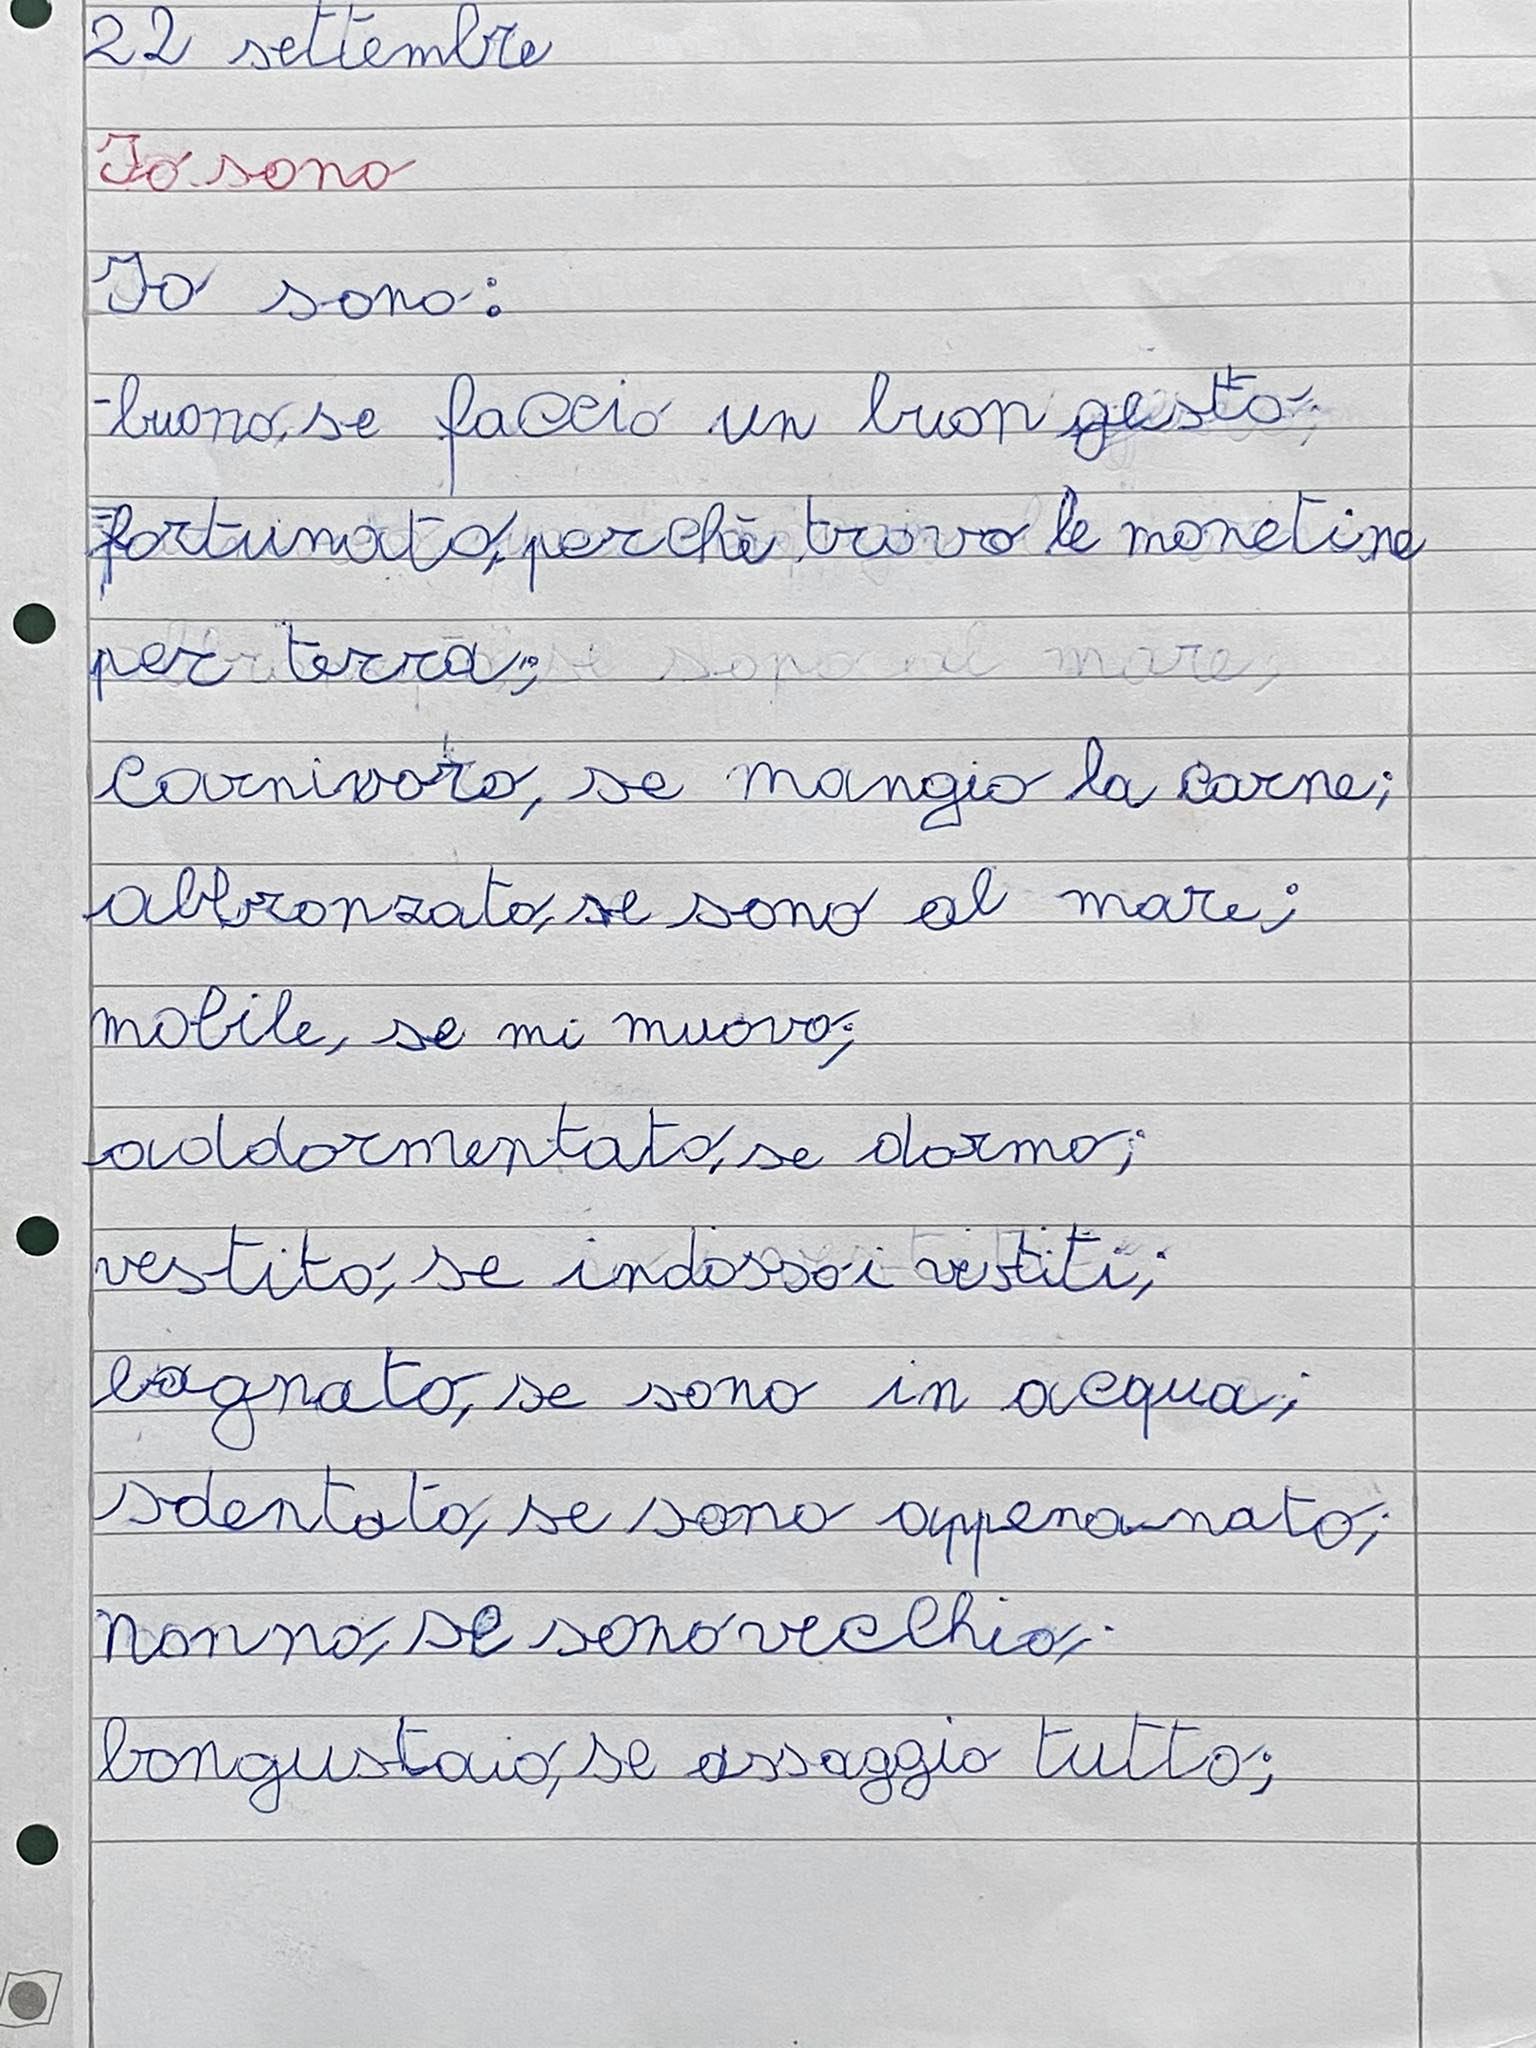 22 settembre
Io sono
Io sono:
-buono, se faccio un buon gesto;
-fortunato, perchè trovo le monetine
per terra;
carnivoro, se mangio la carne;
abbronzato, se sono al mare;
mobile, se mi muovo;
addormentato, se dormo;
vestito, se indosso i vestiti;
bagnato, se sono in acqua;
sdentato, se sono appena nato;
nonno, se sono vecchio;
bongustaio, se assaggio tutto;